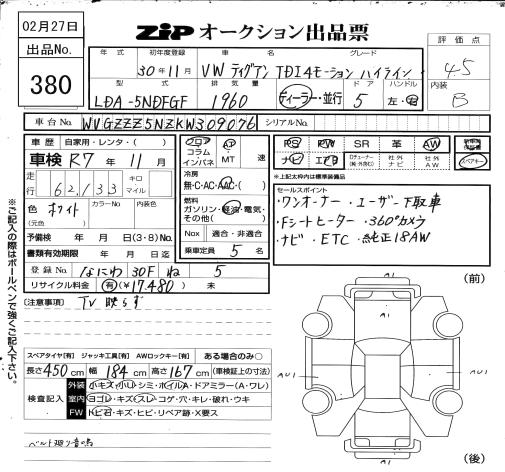 02月27日
ZiP オークション出品票
出品No.
380
年式 初年度登録 車名 グレード
30年11月 VW ティグアン TDI4モーション ハイライン
評価点
4.5
内装
B
型式 排気量 ドア ハンドル
LDA-5NDFGF 1960 ディーラー・並行 5 左・右
車台No. WVGZZZ5NZKW309076 シリアルNo.
車歴 自家用・レンタ・( )
車検 R7年 11月
走行 62,133 キロ マイル
色 ホワイト カラーNo 内装色
(元色)
予備検 年 月 日(3・8)No.
書類有効期限 年 月 日迄
登録No. なにわ 30F ね 5
リサイクル料金 有(¥17,480) 未
フロア コラム インパネ AT MT 速
冷房
無・C・AC・AAC・( )
燃料
ガソリン・軽油・電気・
その他( )
Nox 適合・非適合
乗車定員 5名
PS PW SR 革 AW
ナビ エアB ロチューナー 社外ナビ 社外AW
スペアキー
※上記太枠内は標準装備品
セールスポイント
・ワンオーナー・ユーザー下取車
・Fシートヒーター・360°カメラ
・ナビ・ETC・純正18AW
※ご記入の際はボールペンで強くご記入下さい。
(注意事項) TV映らず
スペアタイヤ[有] ジャッキ工具[有] AWロックキー[有] ある場合のみ○
長さ450cm 幅184cm 高さ167cm (車検証上の寸法)
検査記入
外装 小キズ・小凹・シミ・ホイルA・ドアミラー(A・ワレ)
室内 ヨゴレ・キズ・スレ・コゲ・穴・キレ・破れ・ウキ
FW トビ石・キズ・ヒビ・リペア跡・X要ス
ベルト廻り音有
(前)
A1
AU1
AU1
A1
(後)